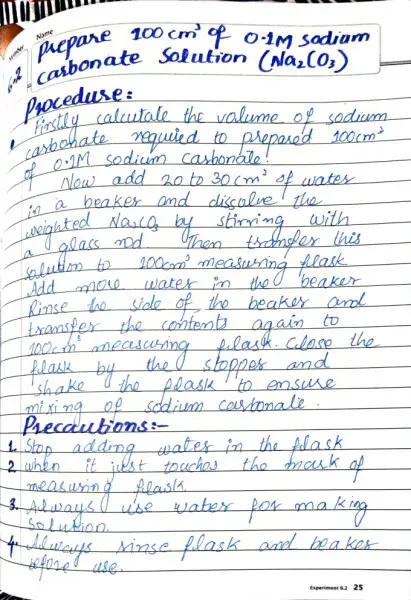 Name
Prepare 100 cm³ of 0.1M sodium
number
6.2
carbonate Solution (Na₂CO₃)
Procedure:
Firstly calcutate the volume of sodium
carbonate required to prepared 100cm³
of 0.1M sodium carbonate.
Now add 20 to 30 cm³ of water
in a beaker and dissolve the
weighted Na₂CO₃ by stirring with
a glass rod. Then transfer this
solution to 100cm³ measuring flask
Add more water in the beaker
Rinse the side of the beaker and
transfer the contents again to
100cm³ measuring flask. Close the
flask by the stopper and
shake the flask to ensure
mixing of sodium carbonate.
Precautions:-
1. Stop adding water in the flask
2. when it just touches the mark of
measuring flask.
3. Always use water for making
solution.
4. Always rinse flask and beaker
before use.
Experiment 6.2 25